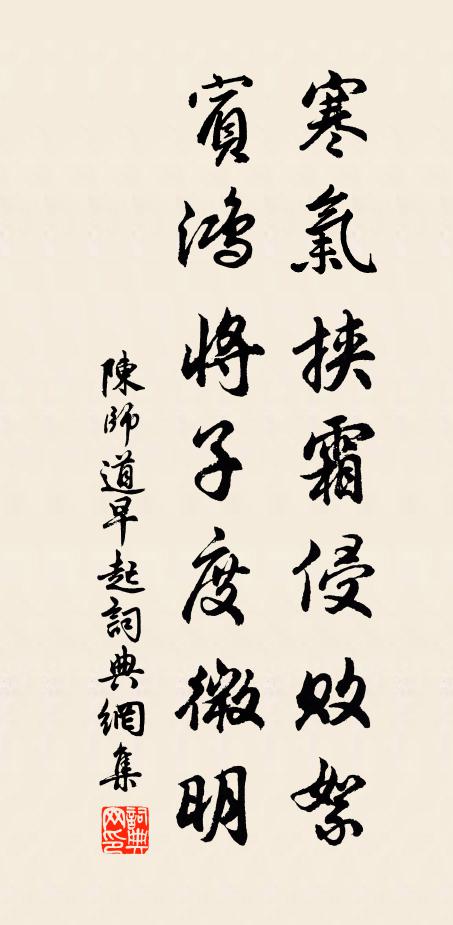 寒氣挾霜侵敗絮
賓鴻將子度微明
陳師道早起詞典網集
詞典网印